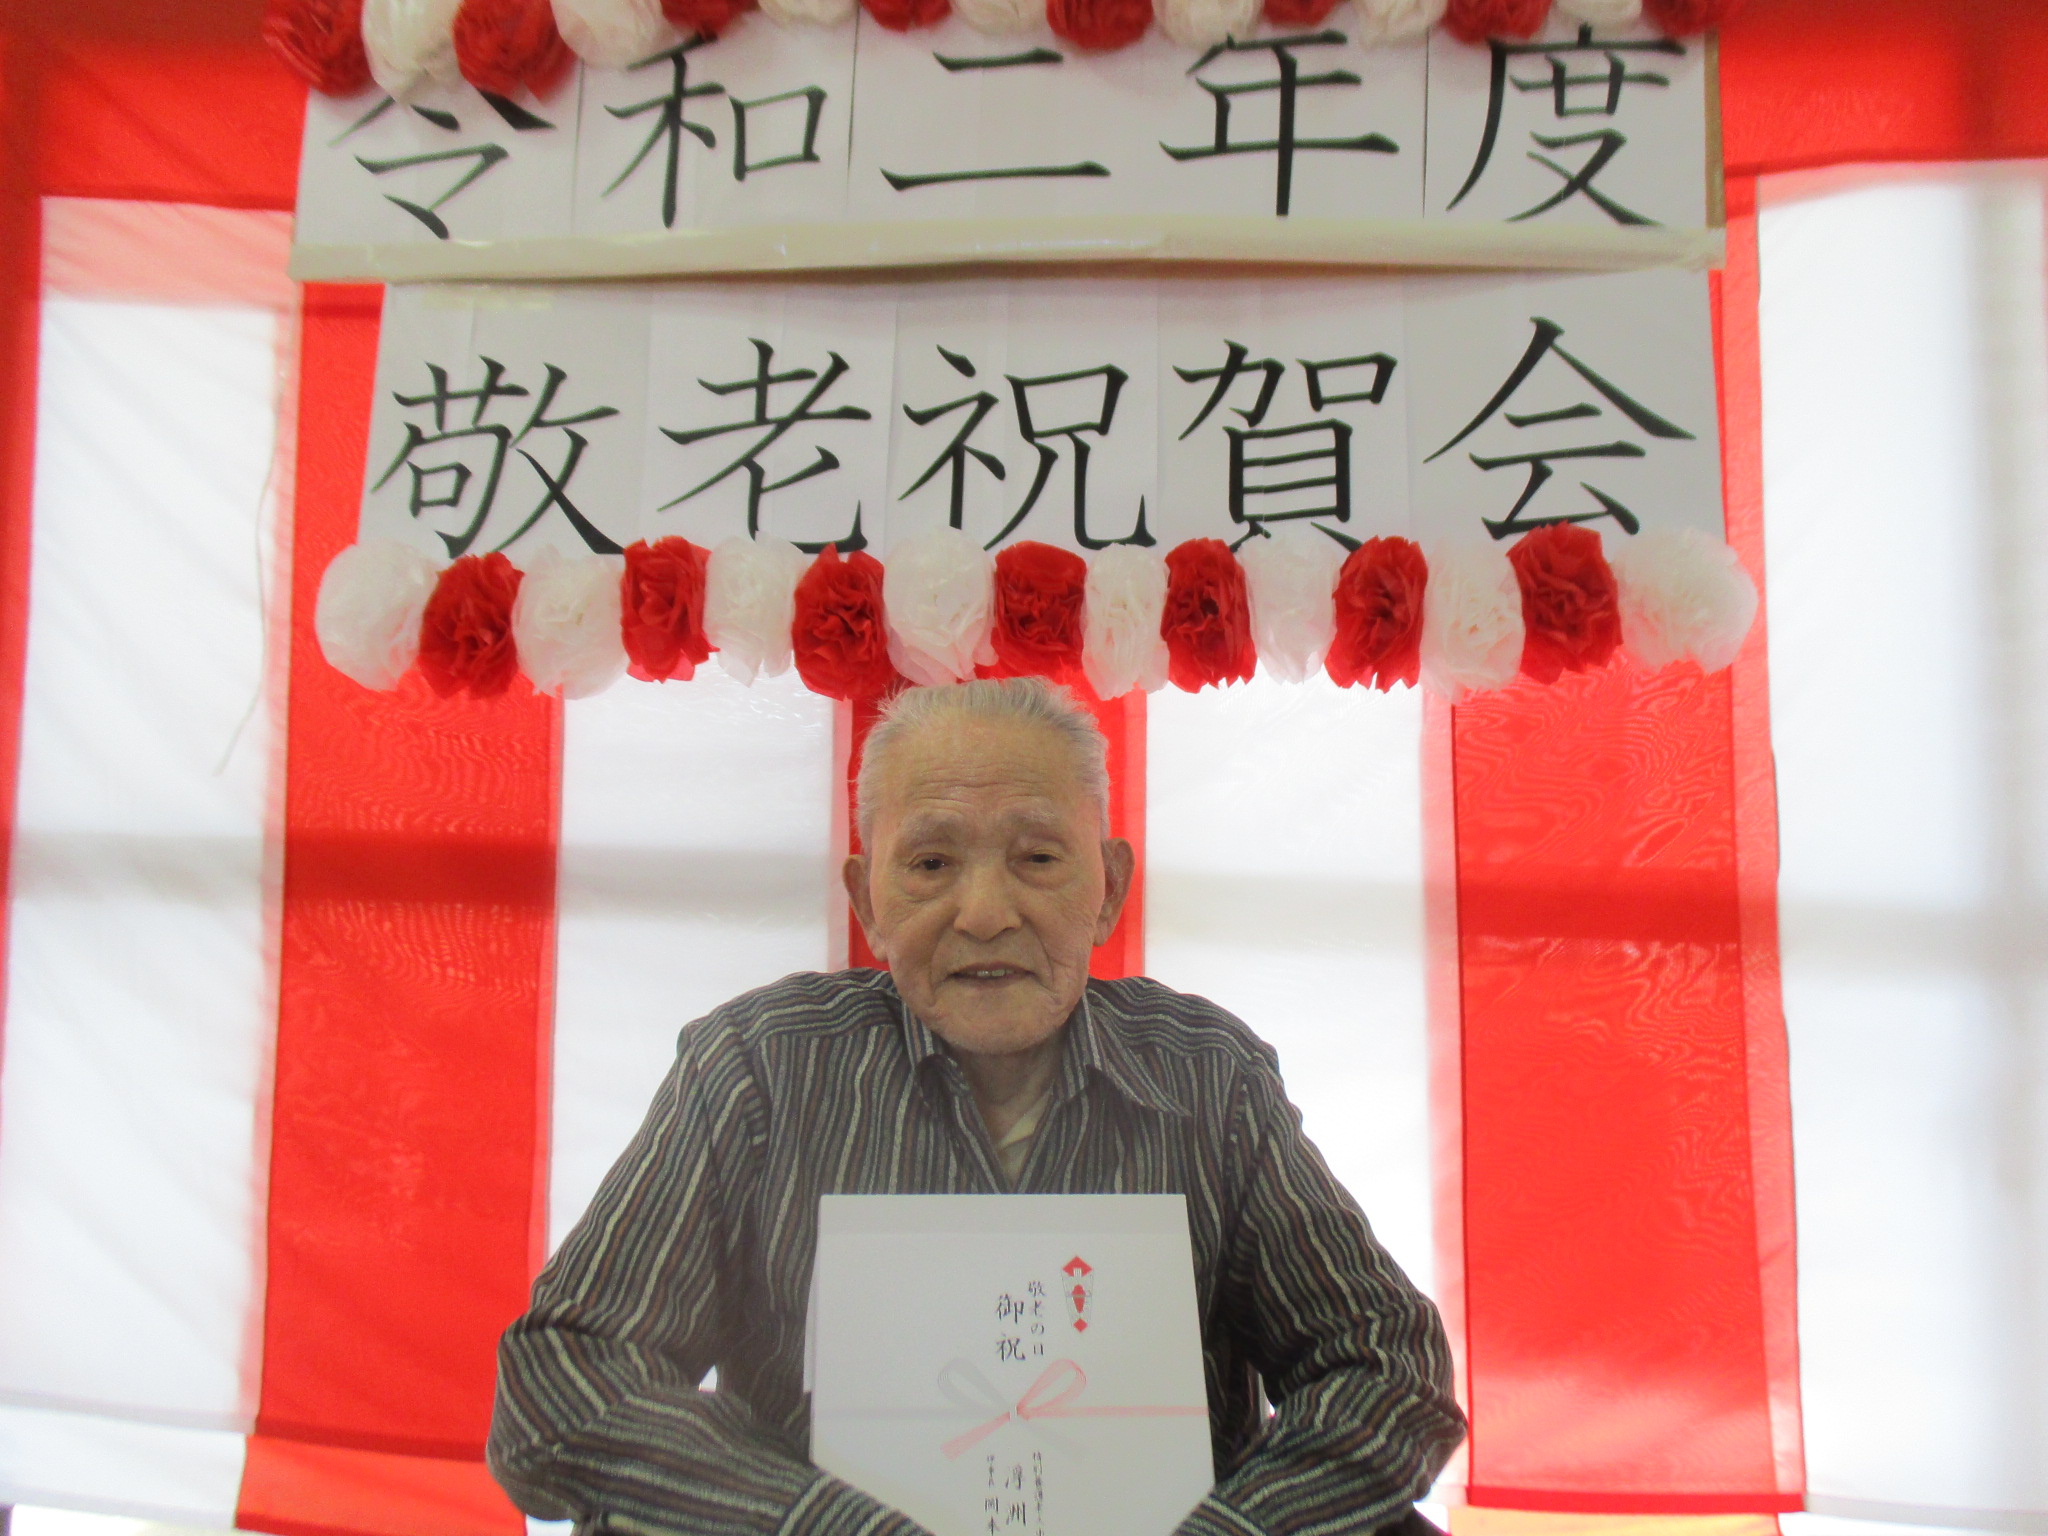 令和二年度
敬老祝賀会
敬老の日
御祝
浮洲